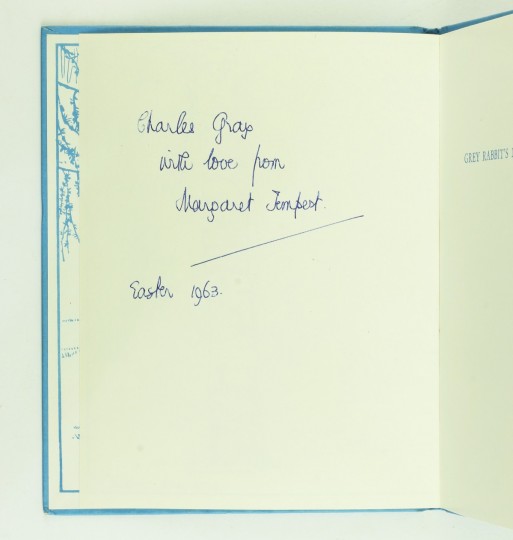 Charles Gray
with love from
Margaret Tempest.
Easter 1963.
GREY RABBIT'S